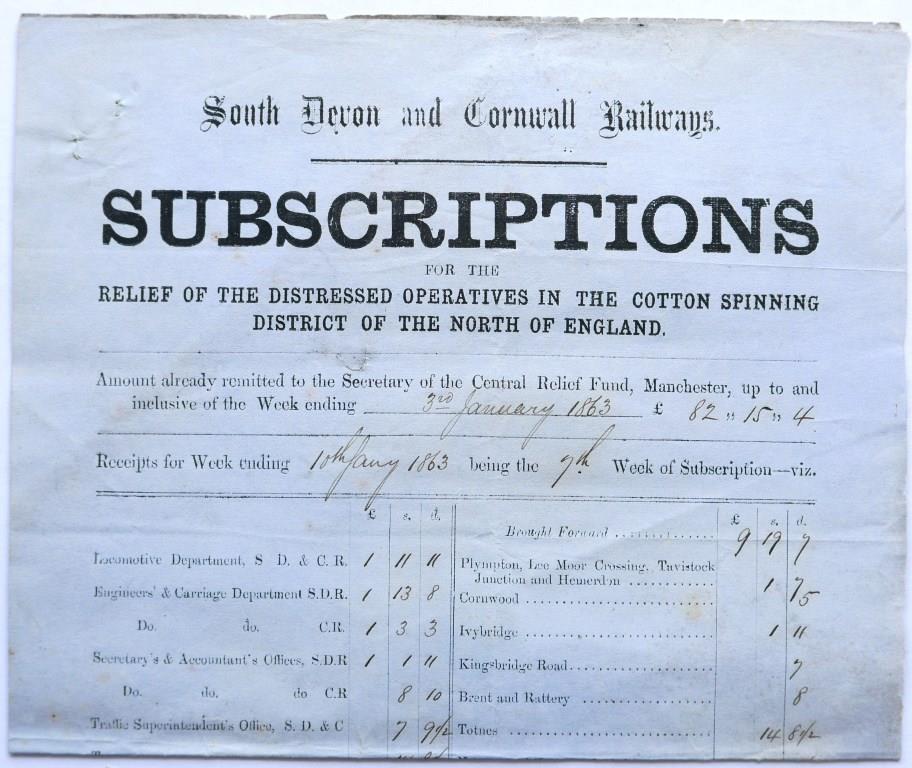 South Devon and Cornwall Railways.
SUBSCRIPTIONS
FOR THE
RELIEF OF THE DISTRESSED OPERATIVES IN THE COTTON SPINNING
DISTRICT OF THE NORTH OF ENGLAND.
Amount already remitted to the Secretary of the Central Relief Fund, Manchester, up to and
inclusive of the Week ending 3rd January 1863 £ 82 " 15 " 4
Receipts for Week ending 10th Jany 1863 being the 7th Week of Subscription—viz.
£ s. d.
Locomotive Department, S D. & C. R. 1 11 11
Engineers' & Carriage Department S.D.R. 1 13 8
Do. do. C.R. 1 3 3
Secretary's & Accountant's Offices, S.D.R 1 1 11
Do. do. do C.R 8 10
Traffic Superintendent's Office, S. D. & C 7 9 1/2
£ s. d.
Brought Forward .............. 9 19 7
Plympton, Lee Moor Crossing, Tavistock
Junction and Hemerdon ............ 1 7
Cornwood ........................... 5
Ivybridge ........................... 1 11
Kingsbridge Road..................... 7
Brent and Rattery ................... 8
Totnes .............................. 14 8 1/2